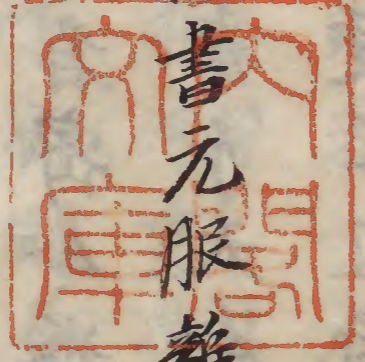 書元服
内閣
文庫